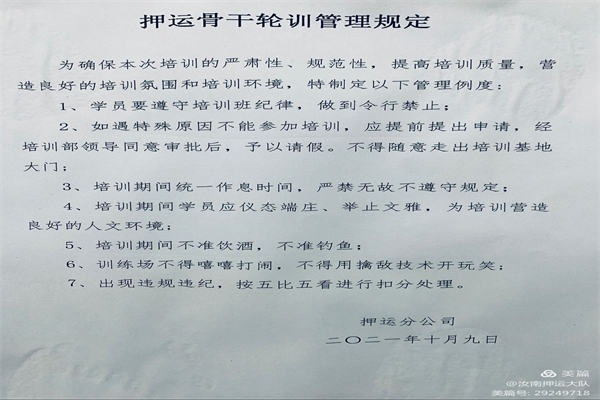 押运骨干轮训管理规定
为确保本次培训的严肃性、规范性，提高培训质量，营
造良好的培训氛围和培训环境，特制定以下管理例度：
1、学员要遵守培训班纪律，做到令行禁止；
2、如遇特殊原因不能参加培训，应提前提出申请，经
培训部领导同意审批后，予以请假。不得随意走出培训基地
大门；
3、培训期间统一作息时间，严禁无故不遵守规定；
4、培训期间学员应仪态端庄、举止文雅，为培训营造
良好的人文环境；
5、培训期间不准饮酒，不准钓鱼；
6、训练场不得嘻嘻打闹，不得用擒敌技术开玩笑；
7、出现违规违纪，按五比五看进行扣分处理。
押运分公司
二〇二一年十月九日
美篇
@汝南押运大队
美篇号: 29249718